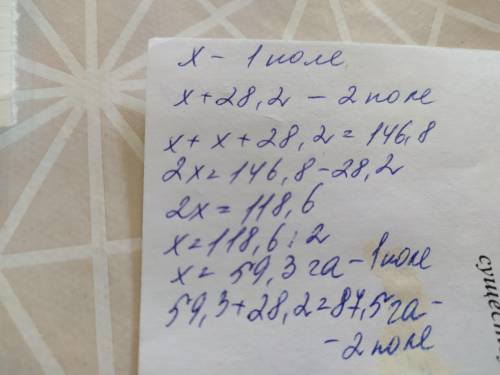 x - 1 поле
x + 28,2 - 2 поле
x + x + 28,2 = 146,8
2x = 146,8 - 28,2
2x = 118,6
x = 118,6 : 2
x = 59,3 га - 1 поле
59,3 + 28,2 = 87,5 га -
- 2 поле
сущест